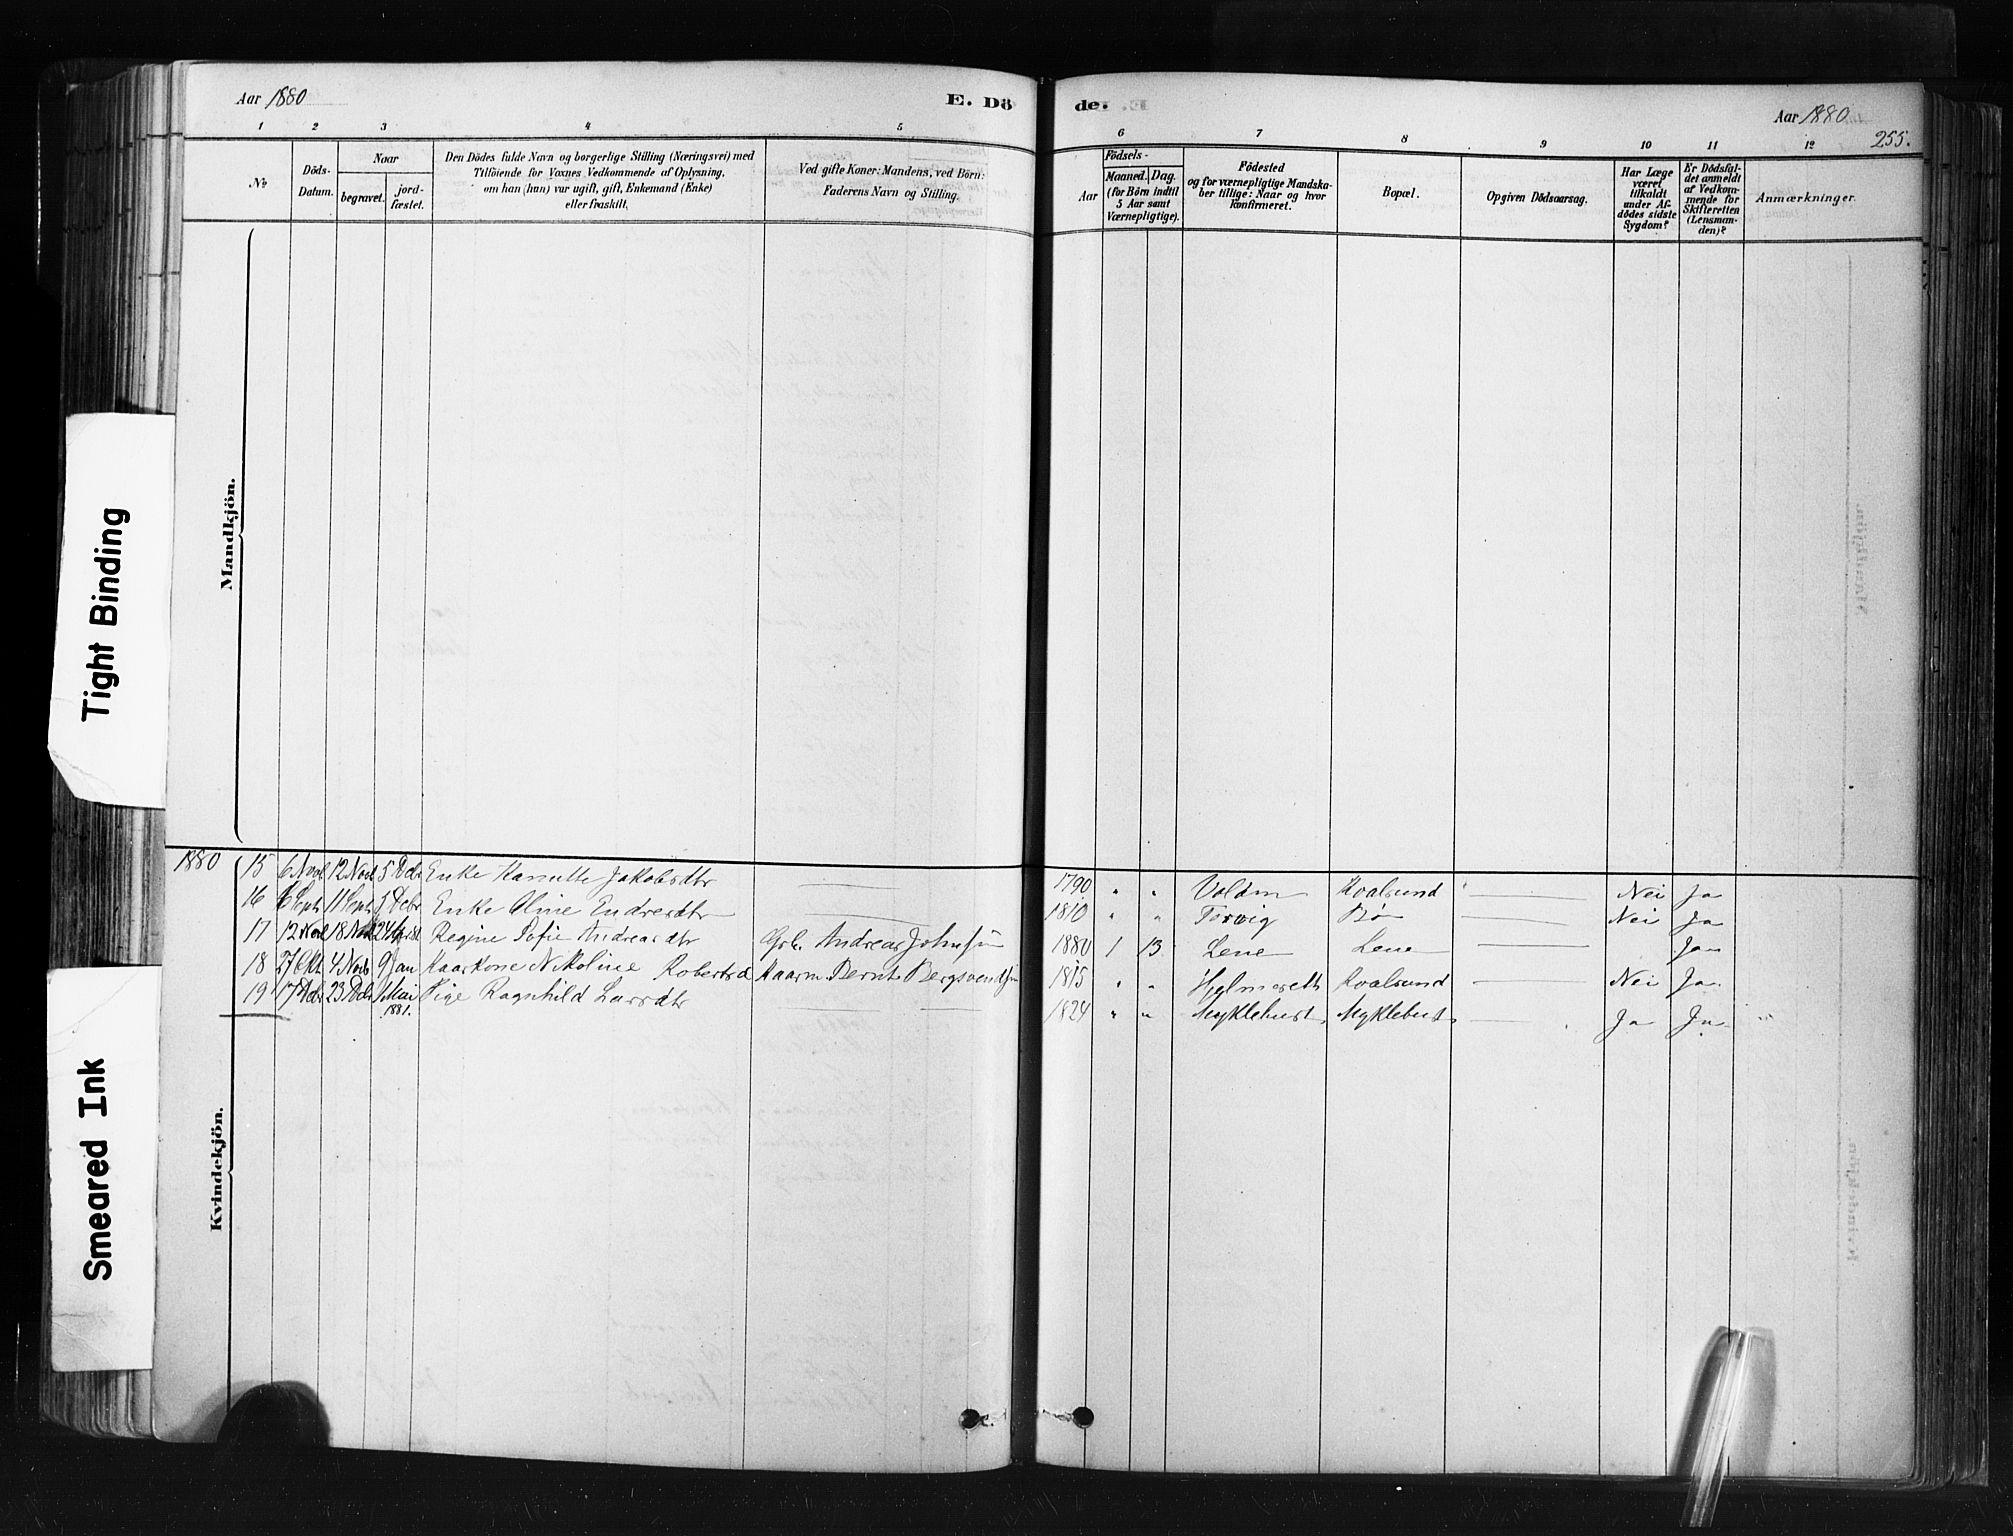 Aar 1880
E. Dö
de.
Aar 1880
255.
1 2 3 4 5 6 7 8 9 10 11 12
No
Döds-
Datum.
Naar
begravet.
jord-
fæstet.
Den Dödes fulde Navn og borgerlige Stilling (Næringsvei) med
Tilföiende for Voxnes Vedkommende af Oplysning,
om han (hun) var ugift, gift, Enkemand (Enke)
eller fraskilt.
Ved gifte Koner: Mandens, ved Börn:
Faderens Navn og Stilling.
Aar
Födsels-
Maaned. Dag.
(for Börn indtil
5 Aar samt
Værnepligtige).
Födested
og for værnepligtige Mandska-
ber tillige: Naar og hvor
konfirmeret.
Bopæl.
Opgiven Dödsaarsag.
Har Læge
været
tilkaldt
under Af-
dödes sidste
Sygdom?
Er Dödsfal-
det anmeldt
af Vedkom-
mende for
Skifteretten
(Lensman-
den)?
Anmærkninger.
Mandkjön.
Kvindekjön.
1880
15 6 Novb 12 Novb 5 Debr Enke Jakobsdtr 1790 " " Volden Kvalsund Nei Ja
16 6 Septr 11 Septr 5 Debr Enke Oline Endresdtr 1810 " " Torvig Bö Nei Ja
17 12 Novb 18 Novb Regine Sofie Andreasdtr Gbr. Andreas Johnsön 1880 1 13 Lene Lene Ja
18 27 Okt 4 Novb 9 Jan Kaarkone Nikoline Robertsd Kaarm Bernt Bergsvendsön 1815 " " Hjelmeseth Kvalsund Nei Ja
19 17 Debr 23 Debr 1 Mai 1881. Pige Ragnhild Larsdtr 1824 " " Myklebust Myklebust Ja Ja
Tight Binding
Smeared Ink